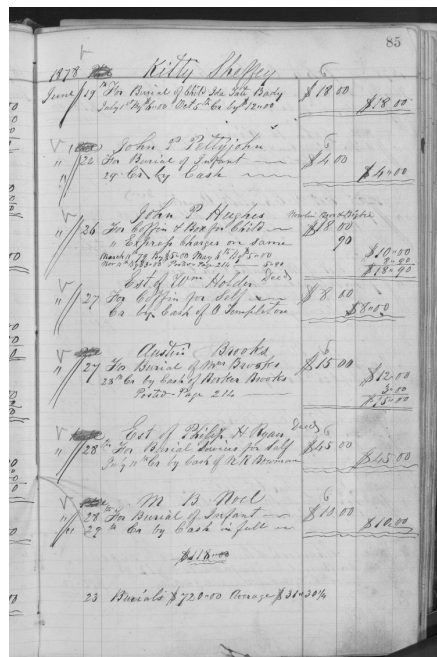 85
1878 Kitty Sheffey
June 19 For Burial of Child Ida Bady $18.00
July 1st By 6=00 Oct 5th Cr by 12=00 $18.00
John P Pettyjohn
" 22 For Burial of Infant $4.00
29 Cr by Cash $4=00
John P Hughes
" 26 For Coffin & Box for Child $18.00
" Express Charges on Same 90
March 79 By $5=00 May 5=00 $10=00
Posted Page 214 8=90
$18=90
Est. of Wm Holder Decd
" 27 For Coffin for Self $8.00
Cr by Cash of O Templeton $8=00
Austin Brooks
" 27 For Burial of Mrs Brooks $15.00
28th Cr by Cash of Booker Brooks $12=00
Posted Page 214 3=00
$15=00
Est of Philip H Ryan Decd
" 28 For Burial Services for Self $45.00
Cr by Cash of N R Bowman $45.00
M B Noel
" 28th For Burial of Infant $10.00
" 29th Cr by Cash in full $10.00
$118=00
23 Burials $720=00 Average $31=30¼